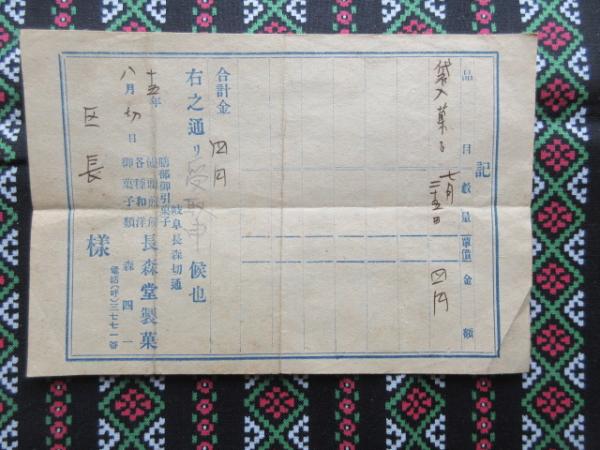 記
品目 数量 単価 金額
袋入菓子 七月二十五日 四円
合計金 四円
右之通リ受取申候也
十五年八月 日
岐阜長森切通
御引菓子
各種和洋
御菓子類
長森堂製菓
森四一
電話(呼)三七七一番
区長様